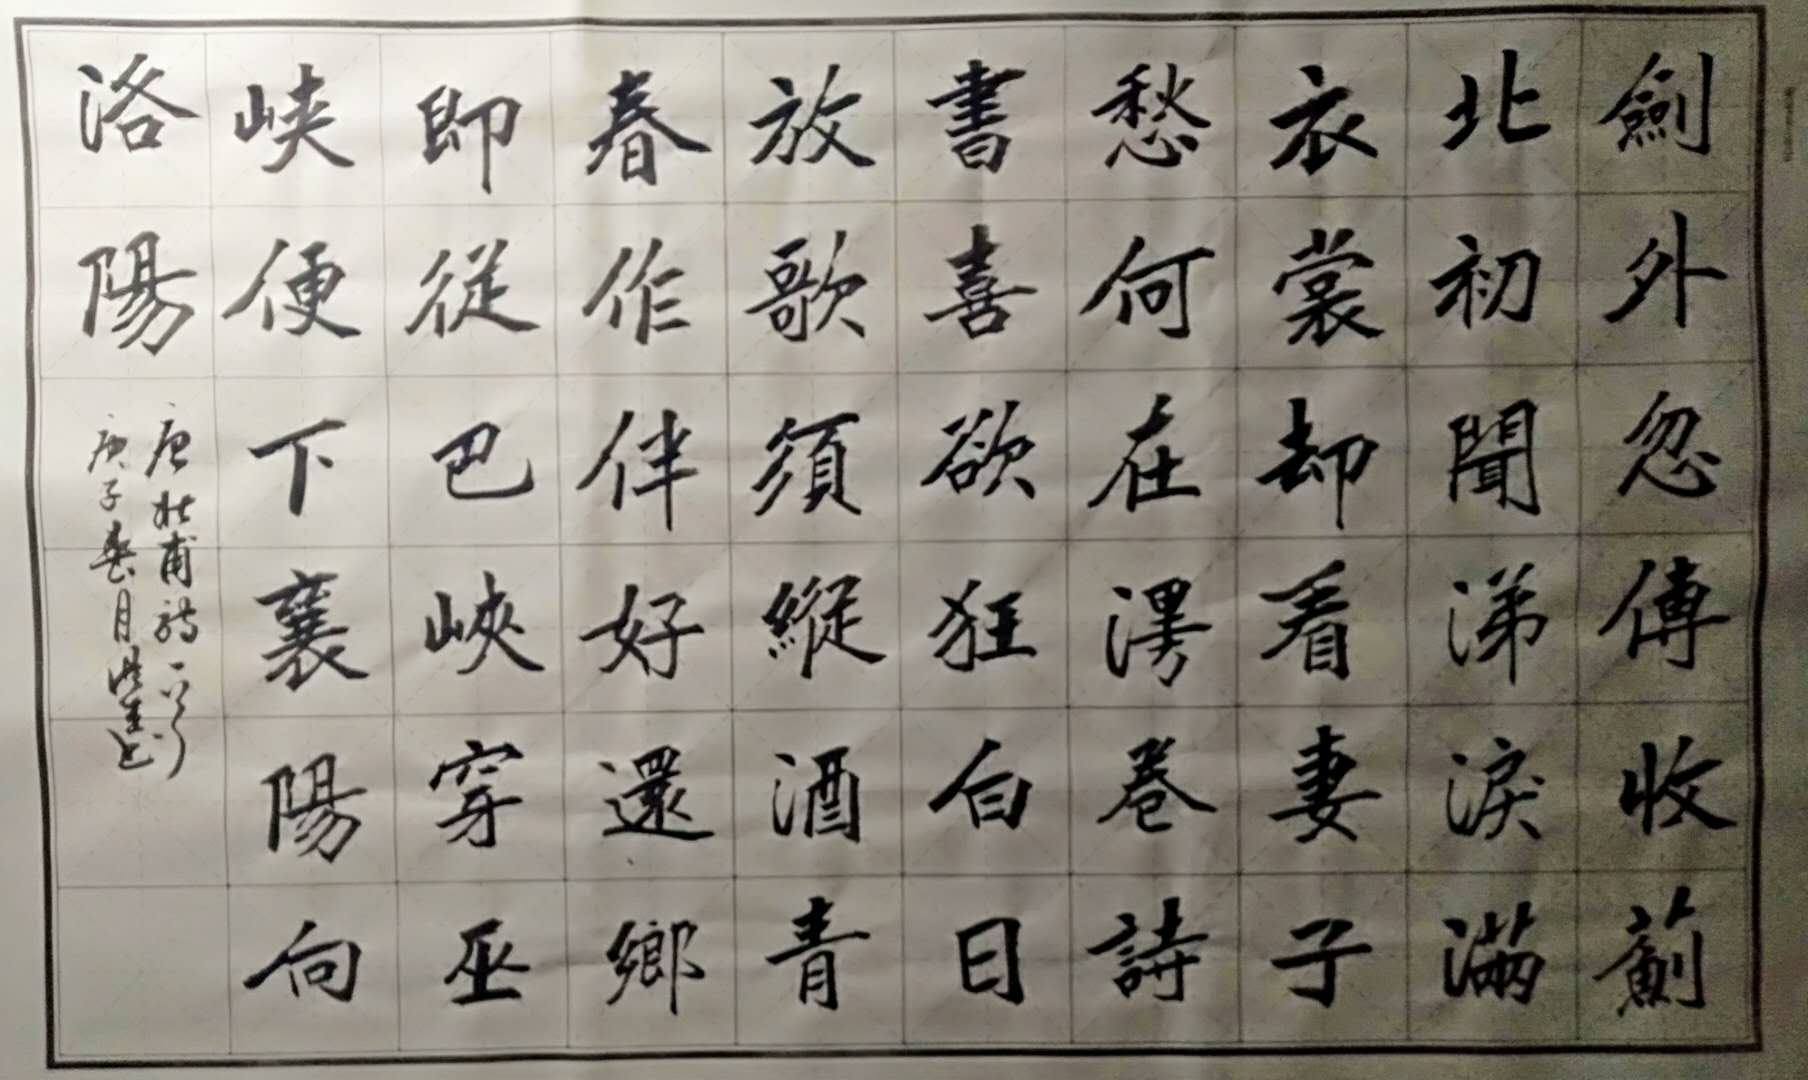 劍外忽傳收薊
北初聞涕淚滿
衣裳却看妻子
愁何在漫卷詩
書喜欲狂白日
放歌須縱酒青
春作伴好還鄉
即從巴峽穿巫
峽便下襄陽向
洛陽
唐杜甫詩一首
庚子春月